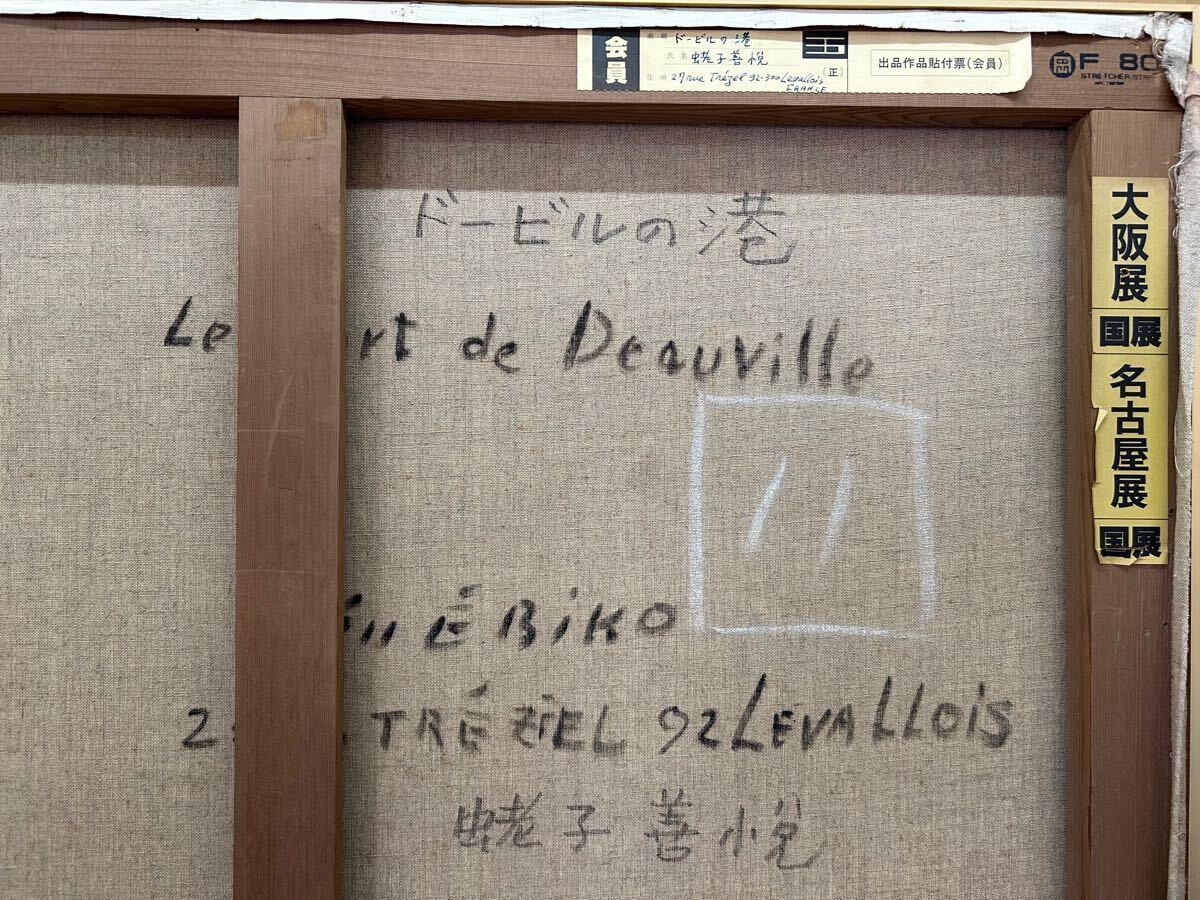 会員
画題 ドービルの港
氏名 蛯子善悦
住所 27 rue Trézel 92.300 Levallois
FRANCE
(正)
出品作品貼付票(会員)
F 80
STRETCHER.STRIP
ドービルの港
Le rt de Deauville
ÉBIKO
2 TRÉZIEL 92 LEVALLOIS
蛯子 善悦
大阪展
国展
名古屋展
国展